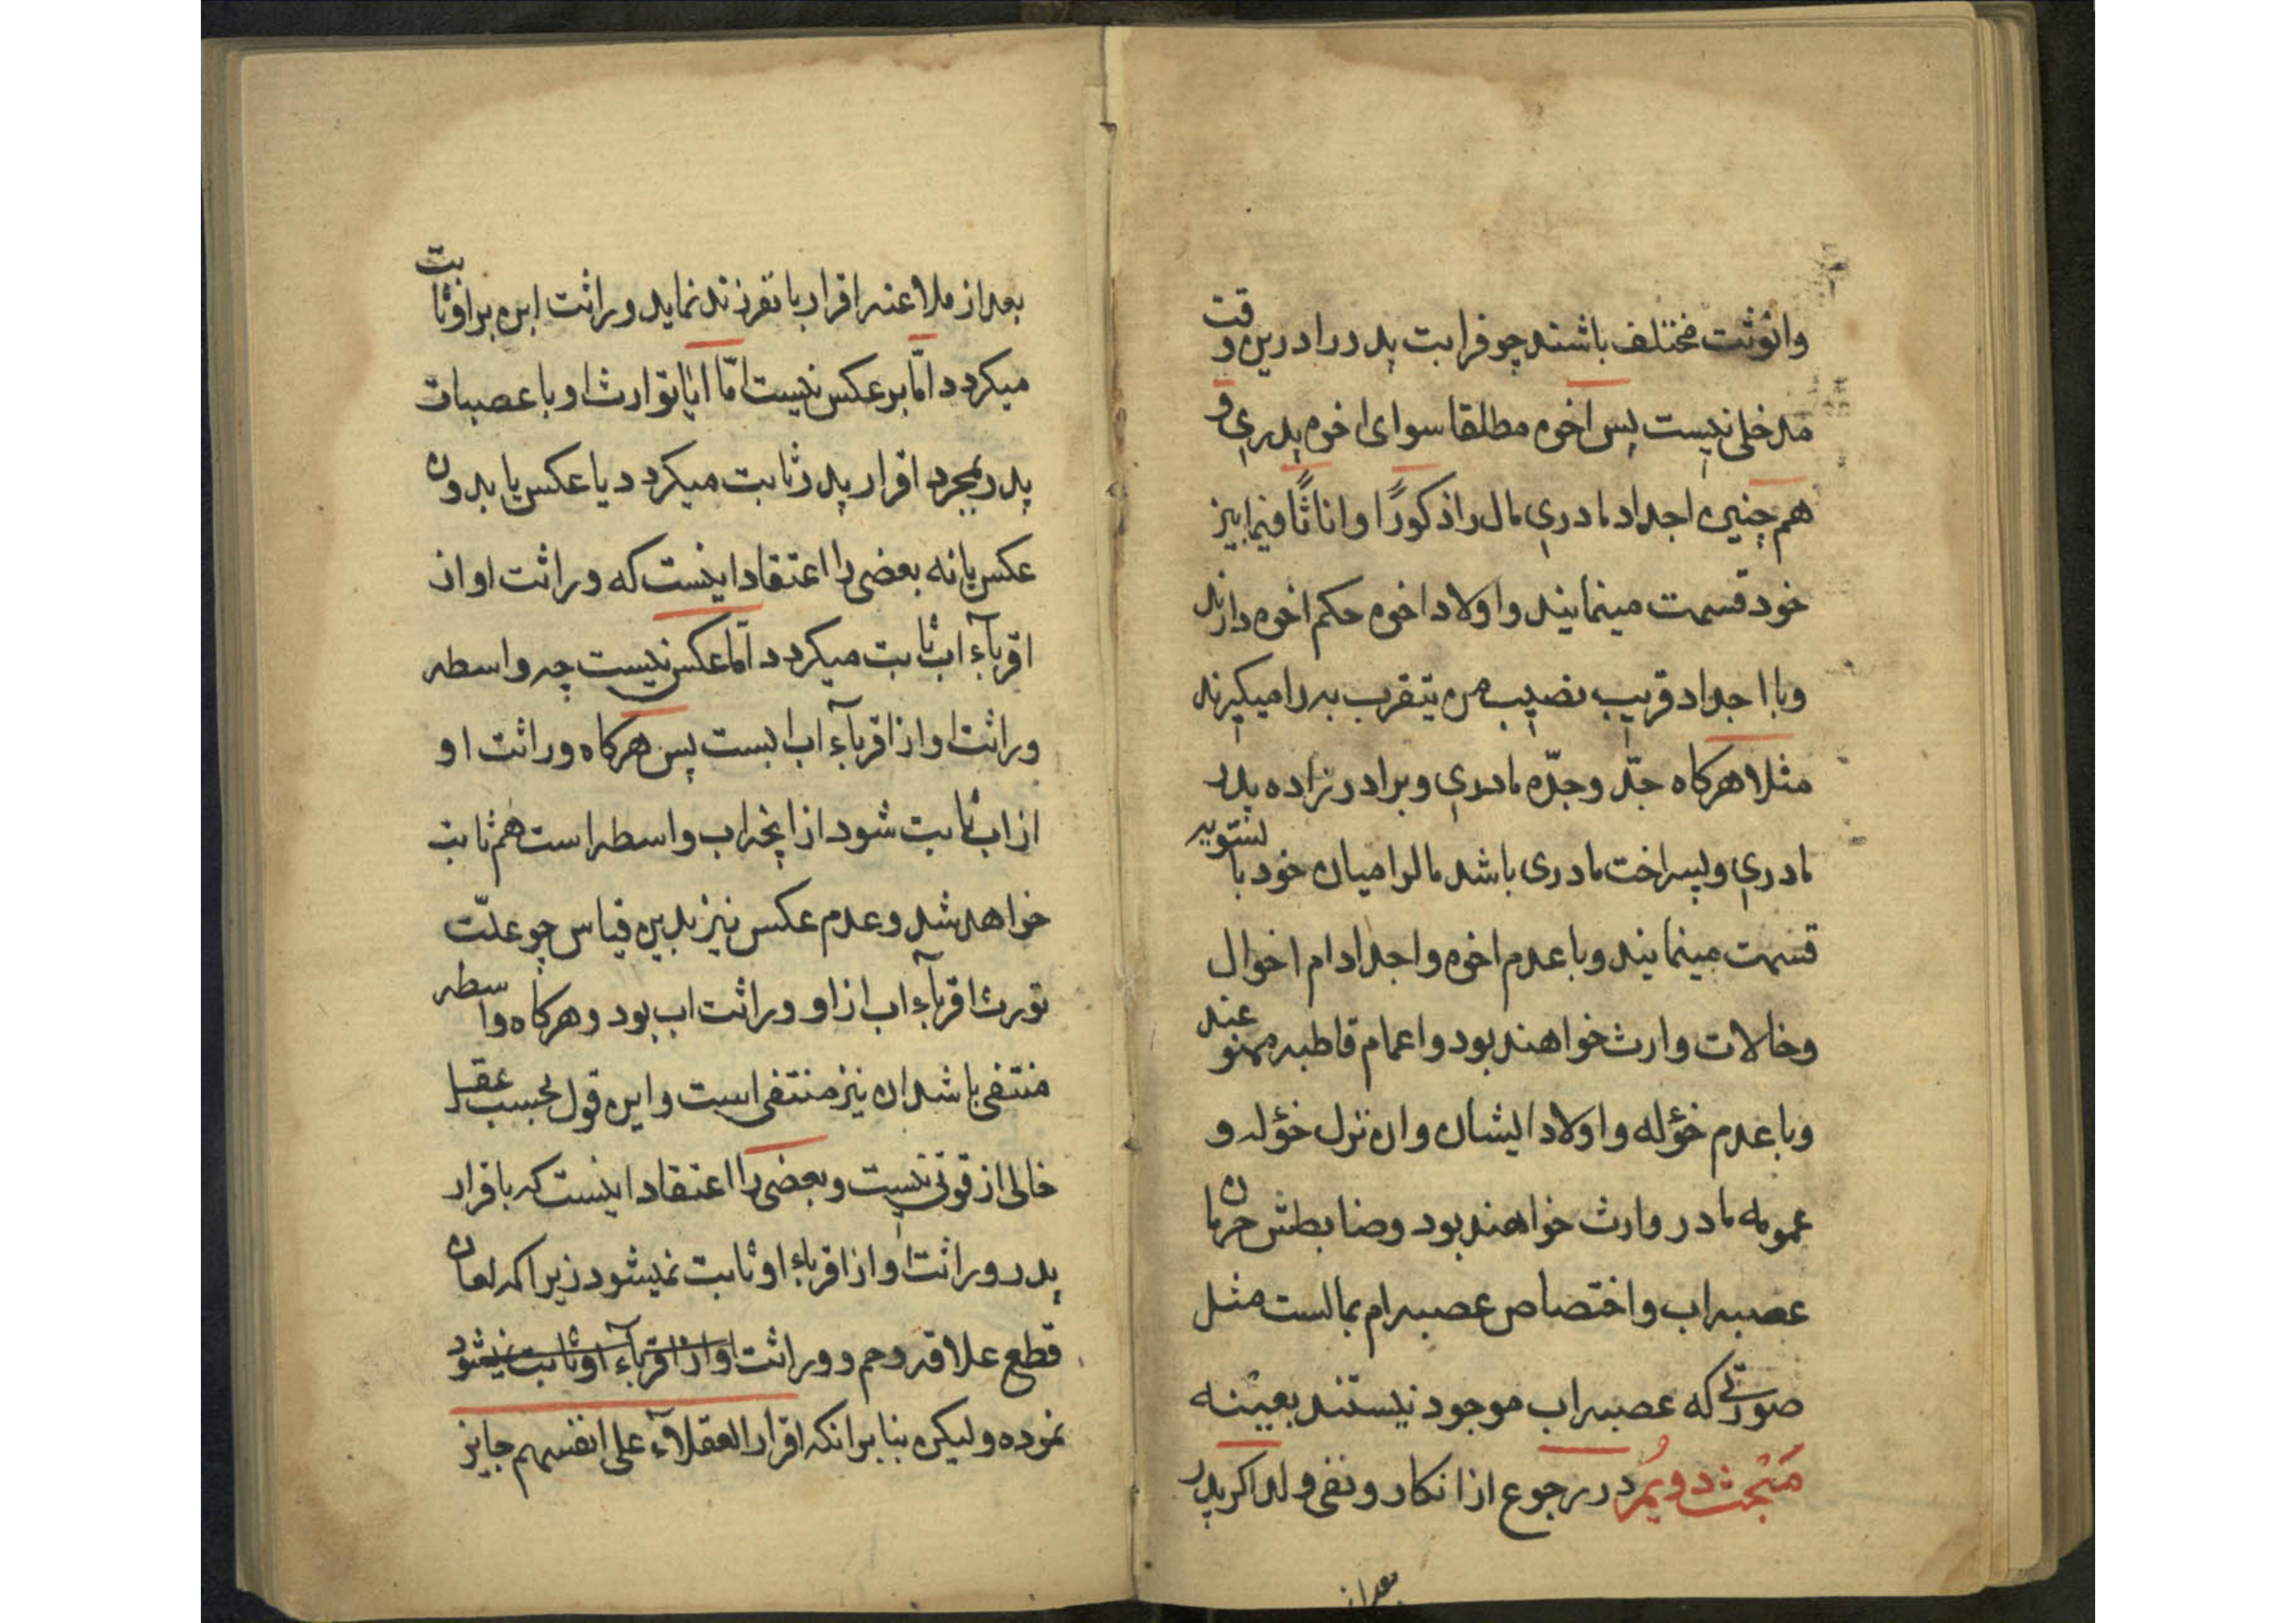 وانوثت مختلف باشند چو قرابت پدر را درین وقت
مدخلی نیست پس اخوه مطلقا سوای اخوه پدری و
هم چنین اجداد مادری مال را ذکورًا و اناثًا فیما بین
خود قسمت مینمایند و اولاد اخوه حکم اخوه دارند
و با اجداد قریب نصیب من یتقرب به را میگیرند
مثلا هرکاه جدّ و جدّه مادری و برادر زاده پدر
مادری و پسر اخت مادری باشد مالرا میان خود بالتسویه
قسمت مینمایند و با عدم اخوه و اجداد ام اخوال
و خالات وارث خواهند بود و اعمام قاطبه ممنوعند
و با عدم خؤله و اولاد ایشان وان نزل خؤله و
عمومه مادر وارث خواهند بود و ضابطش حرمان
عصبه اب و اختصاص عصبه ام بمالست مثل
صورتی که عصبه اب موجود نیستند بعینه
مبحث دویم در رجوع از انکار و نفی ولد اکر پدر
بعد از
بعد از ملاعنه اقرار بانفرزند نماید وراثت ابن بر او ثابت
میکردد امّا بر عکس نیست امّا ایا توارث او با عصبات
پدر بمجرد اقرار پدر ثابت میکردد یا عکس یا بدون
عکس یا نه بعضی را اعتقاد اینست که وراثت او از
اقربآء اب ثابت میکردد امّا عکس نیست چه واسطه
وراثت او از اقربآء اب ابست پس هرکاه وراثت او
از اب ثابت شود از انچه اب واسطه است هم ثابت
خواهد شد و عدم عکس نیز بدین قیاس چو علّت
تورث اقربآء اب از او وراثت اب بود و هرکاه واسطه
منتفی باشد ان نیز منتفی است و این قول بحسب عقل
خالی از قوتی نیست و بعضی را اعتقاد اینست که باقرار
پدر وراثت او از اقرباء او ثابت نمیشود زیرا که لعان
قطع علاقه رحم و وراثت او از اقربآء او ثابت نمیشود
نموده و لیکن بنا بر انکه اقرار العقلآء علی انفسهم جایز